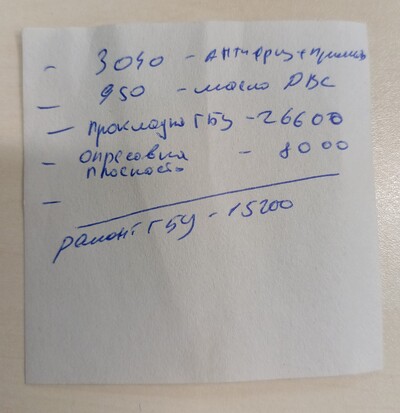 - 3040 - Антифриз + промыв
- 950 - масло ДВС
- Прокладка ГБЦ - 26600
- опресовка - 8000
плоскость
-
ремонт ГБЦ - 15200